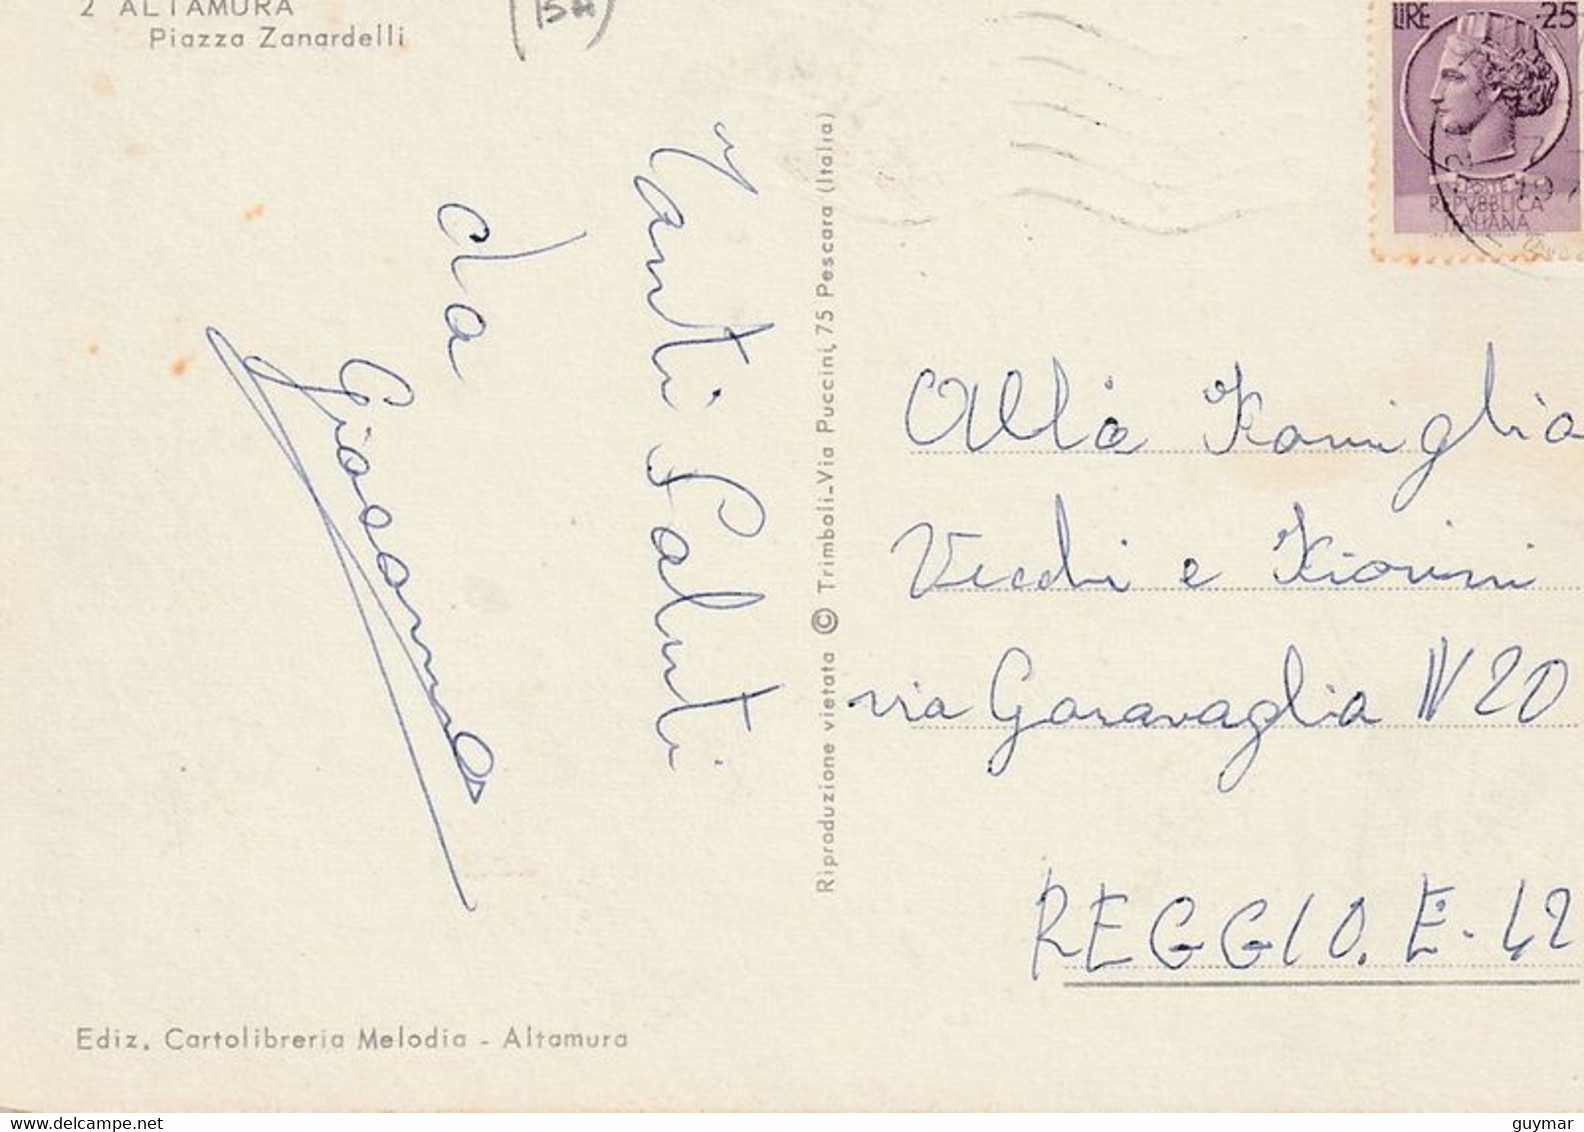 2 ALTAMURA
Piazza Zanardelli
LIRE 25
POSTE
REPVBBLICA
ITALIANA
Tanti Saluti
da
Giosanna
Riproduzione vietata © Trimboli-Via Puccini, 75 Pescara (Italia)
Alla Famiglia
Vecchi e Fiorini
via Garavaglia N 20
REGGIO. E. 42
Ediz. Cartolibreria Melodia - Altamura
www.delcampe.net
guymar